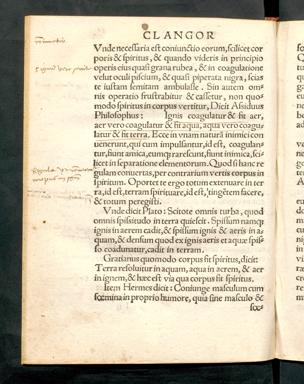 CLANGOR
Vnde necessaria est coniunctio eorum, scilicet cor
poris & spiritus, & quando videris in principio
operis eius quasi grana rubea, & in coagulatione
velut oculi piscium, & quasi piperata nigra, scias
te iustam semitam ambulasse. Sin autem om
nis operatio frustrabitur & cassetur, non quo
modo spiritus in corpus vertitur, Dicit Assiduus
Philosophus: Ignis coagulatur & fit aer,
aer vero coagulatur & fit aqua, aqua vero coagu
latur & fit terra. Ecce in vnam naturã inimici con
uenerunt, qui cum impulsantur, id est, coagulan
tur, sunt amica, cumq; rarescunt, sunt inimica, sci
licet in separatione elementorum. Quod si hanc re
gulam conuertas, per contrarium vertis corpus in
spiritum. Oportet te ergo totum extenuare in ter
ra, id est, terram spirituare, id est, tingssem facere,
& totum peregisti.
Vnde dicit Plato: Scitote omnis turba, quod
omnis spissitudo in terra quiescit. Spissum namq;
ignis in aerem cadit, & spissum ignis & aeris in a=
quam, & densum quod ex ignis aeris et aquæ spis=
so coadunatur, cadit in terram.
Gratianus quomodo corpus fit spiritus, dicit:
Terra resoluitur in aquam, aqua in aerem, & aer
in ignem, & hæc est via qua corpus fit spiritus.
Item Hermes dicit: Coniunge masculum cum
fœmina in proprio humore, quia sine masculo &
fœ=